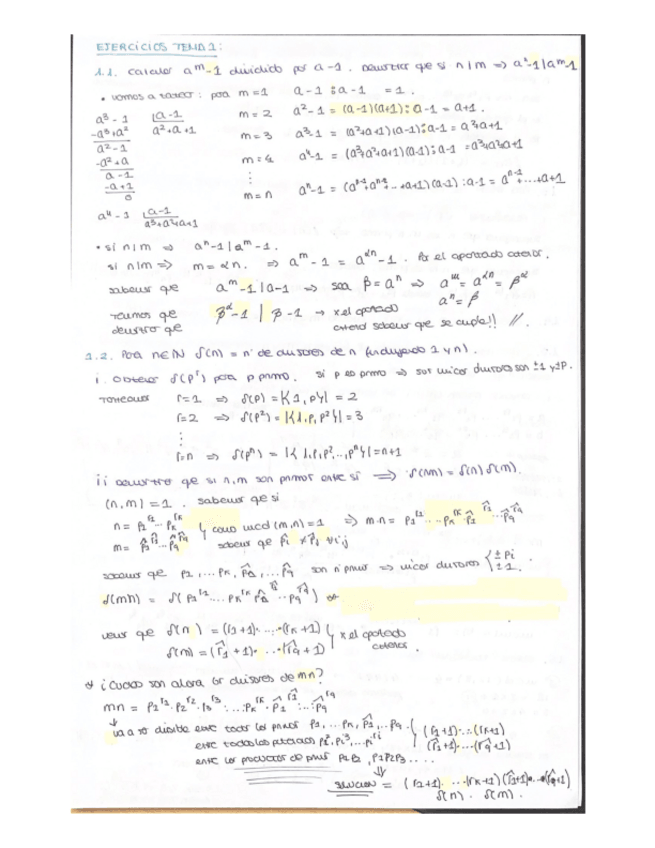 EJERCICIOS TEMA 1:
1.1. Calcular a^m-1 dividido por a-1. Demostrar que si n|m ⇒ a^n-1|a^m-1
• vamos a tantear: para m=1 a-1 : a-1 = 1.
m=2 a²-1 = (a-1)(a+1) : a-1 = a+1.
m=3 a³-1 = (a²+a+1)(a-1) : a-1 = a²+a+1
m=4 a⁴-1 = (a³+a²+a+1)(a-1) : a-1 = a³+a²+a+1
⋮
m=n a^n-1 = (a^{n-1}+a^{n-2}+..+a+1)(a-1) : a-1 = a^{n-1}+...+a+1
a³-1 |a-1
-a³+a² a²+a+1
a²-1
-a²+a
a-1
-a+1
0
a⁴-1 |a-1
a³+a²+a+1
• si n|m ⇒ a^n-1|a^m-1.
si n|m ⇒ m=αn. ⇒ a^m-1 = a^{αn}-1. Por el apartado anterior,
sabemos que a^m-1|a-1 ⇒ sea β=a^n ⇒ a^m=a^{αn}=β^α
a^n=β
Tenemos que demostrar que β^α-1 | β-1 → x el apartado anterior sabemos que se cumple!! //.
1.2. Para n∈ℕ δ(n) = nº de divisores de n (incluyendo 1 y n).
i. Obtener δ(p^r) para p primo. Si p es primo ⇒ sus únicos divisores son ±1 y ±p.
Tanteamos r=1 ⇒ δ(p)=|{1,p}|=2
r=2 ⇒ δ(p²)=|{1,p,p²}|=3
⋮
r=n ⇒ δ(p^n)=|{1,p,p²,..,p^n}|=n+1
ii demostrar que si n,m son primos entre sí ⇒ δ(nm)=δ(n)δ(m).
(n,m)=1. sabemos que si
n=p₁^{r₁}...p_k^{r_k}
m=p̂₁^{r̂₁}...p̂_q^{r̂_q} } como mcd(m,n)=1 sabemos que p̂i≠pj ∀i,j ⇒ m·n=p₁^{r₁}...p_k^{r_k} p̂₁^{r̂₁}...p̂_q^{r̂_q}
sabemos que p₁,...p_k, p̂₁,...p̂_q son nº primos ⇒ únicos divisores { ±pi ±1.
δ(mn) = δ(p₁^{r₁}...p_k^{r_k} p̂₁^{r̂₁}...p̂_q^{r̂_q})
veamos que δ(n)=(r₁+1)·...·(r_k+1)
δ(m)=(r̂₁+1)·...·(r̂_q+1) } x el apartado anterior.
¿Cuáles son ahora los divisores de mn?
mn = p₁^{r₁}·p₂^{r₂}·p₃^{r₃}·...p_k^{r_k}·p̂₁^{r̂₁}·...p̂_q^{r̂_q}
↓
va a ser divisible entre todos los primos p₁,...p_k, p̂₁,...p̂_q.
entre todas las potencias pi²,pi³,...pi^{ri}
entre los productos de primos p₁p₂, p₁p₂p₃....
{ (r₁+1)·...·(r_k+1)
(r̂₁+1)·...·(r̂_q+1)
⇓
SOLUCIÓN = (r₁+1)·...·(r_k+1)(r̂₁+1)·...·(r̂_q+1)
δ(n) · δ(m).